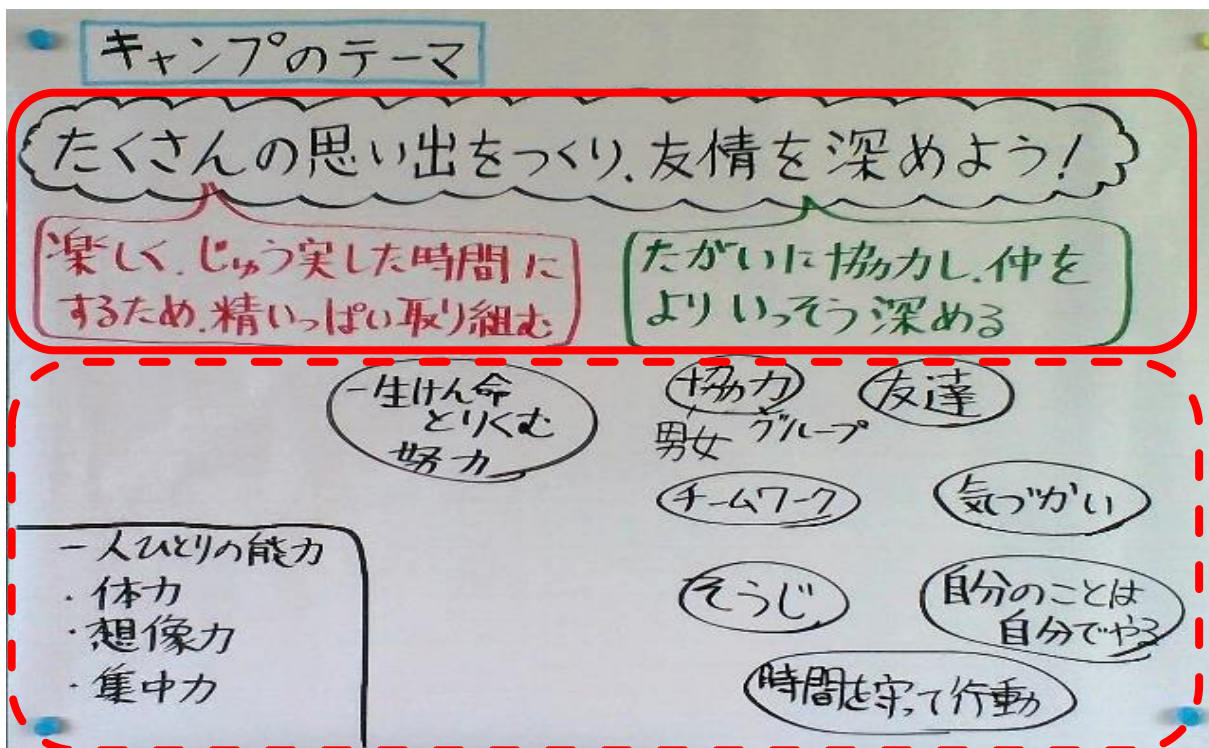 キャンプのテーマ
たくさんの思い出をつくり、友情を深めよう!
楽しく、じゅう実した時間に
するため、精いっぱい取り組む
たがいに協力し、仲を
よりいっそう深める
一生けん命
とりくむ
努力
協力
男女 グループ
友達
チームワーク
気づかい
そうじ
自分のことは
自分でやる
時間を守って行動
一人ひとりの能力
・体力
・想像力
・集中力